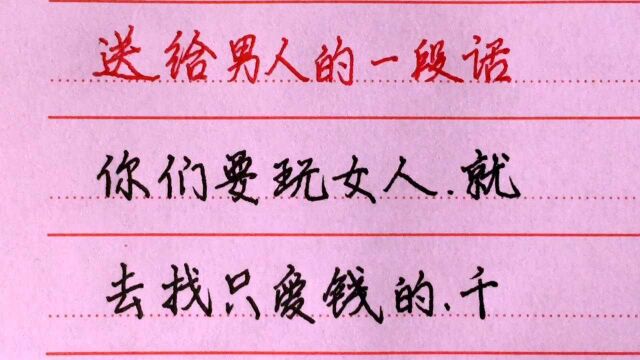 送给男人的一段话
你们要玩女人.就
去找只爱钱的.千